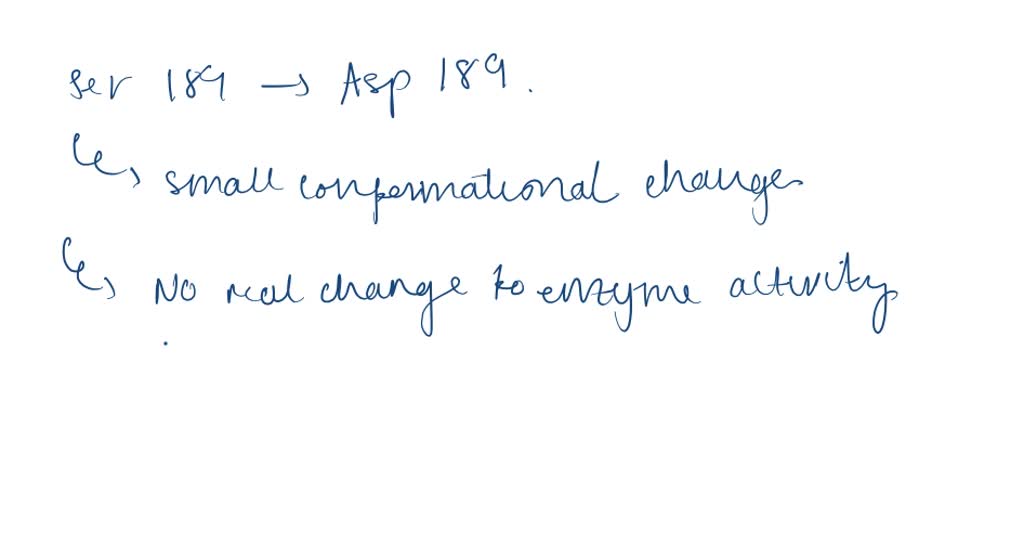 Ser 189 → Asp 189.
↳ small conformational change
↳ No real change to enzyme activity